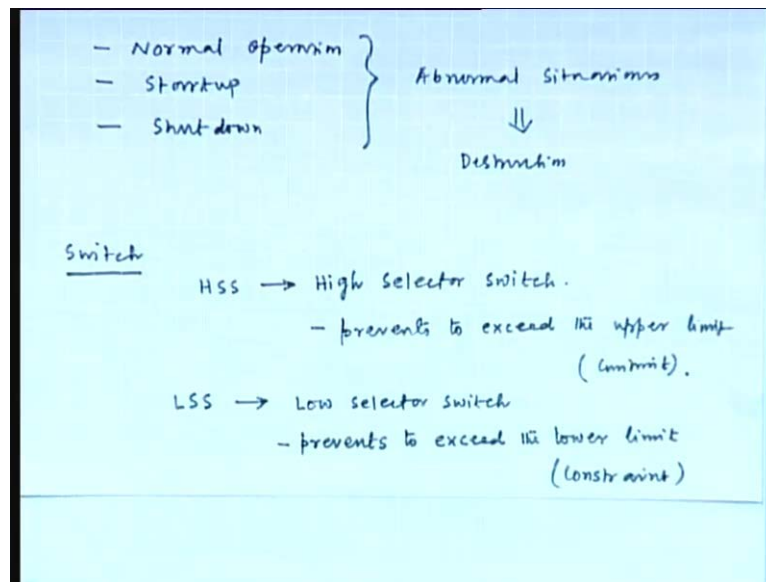 - Normal operation
- Startup
- Shutdown
Abnormal situations
⇓
Destruction
Switch
HSS → High selector switch.
- prevents to exceed the upper limit
(constraint).
LSS → Low selector switch
- prevents to exceed the lower limit
(constraint)